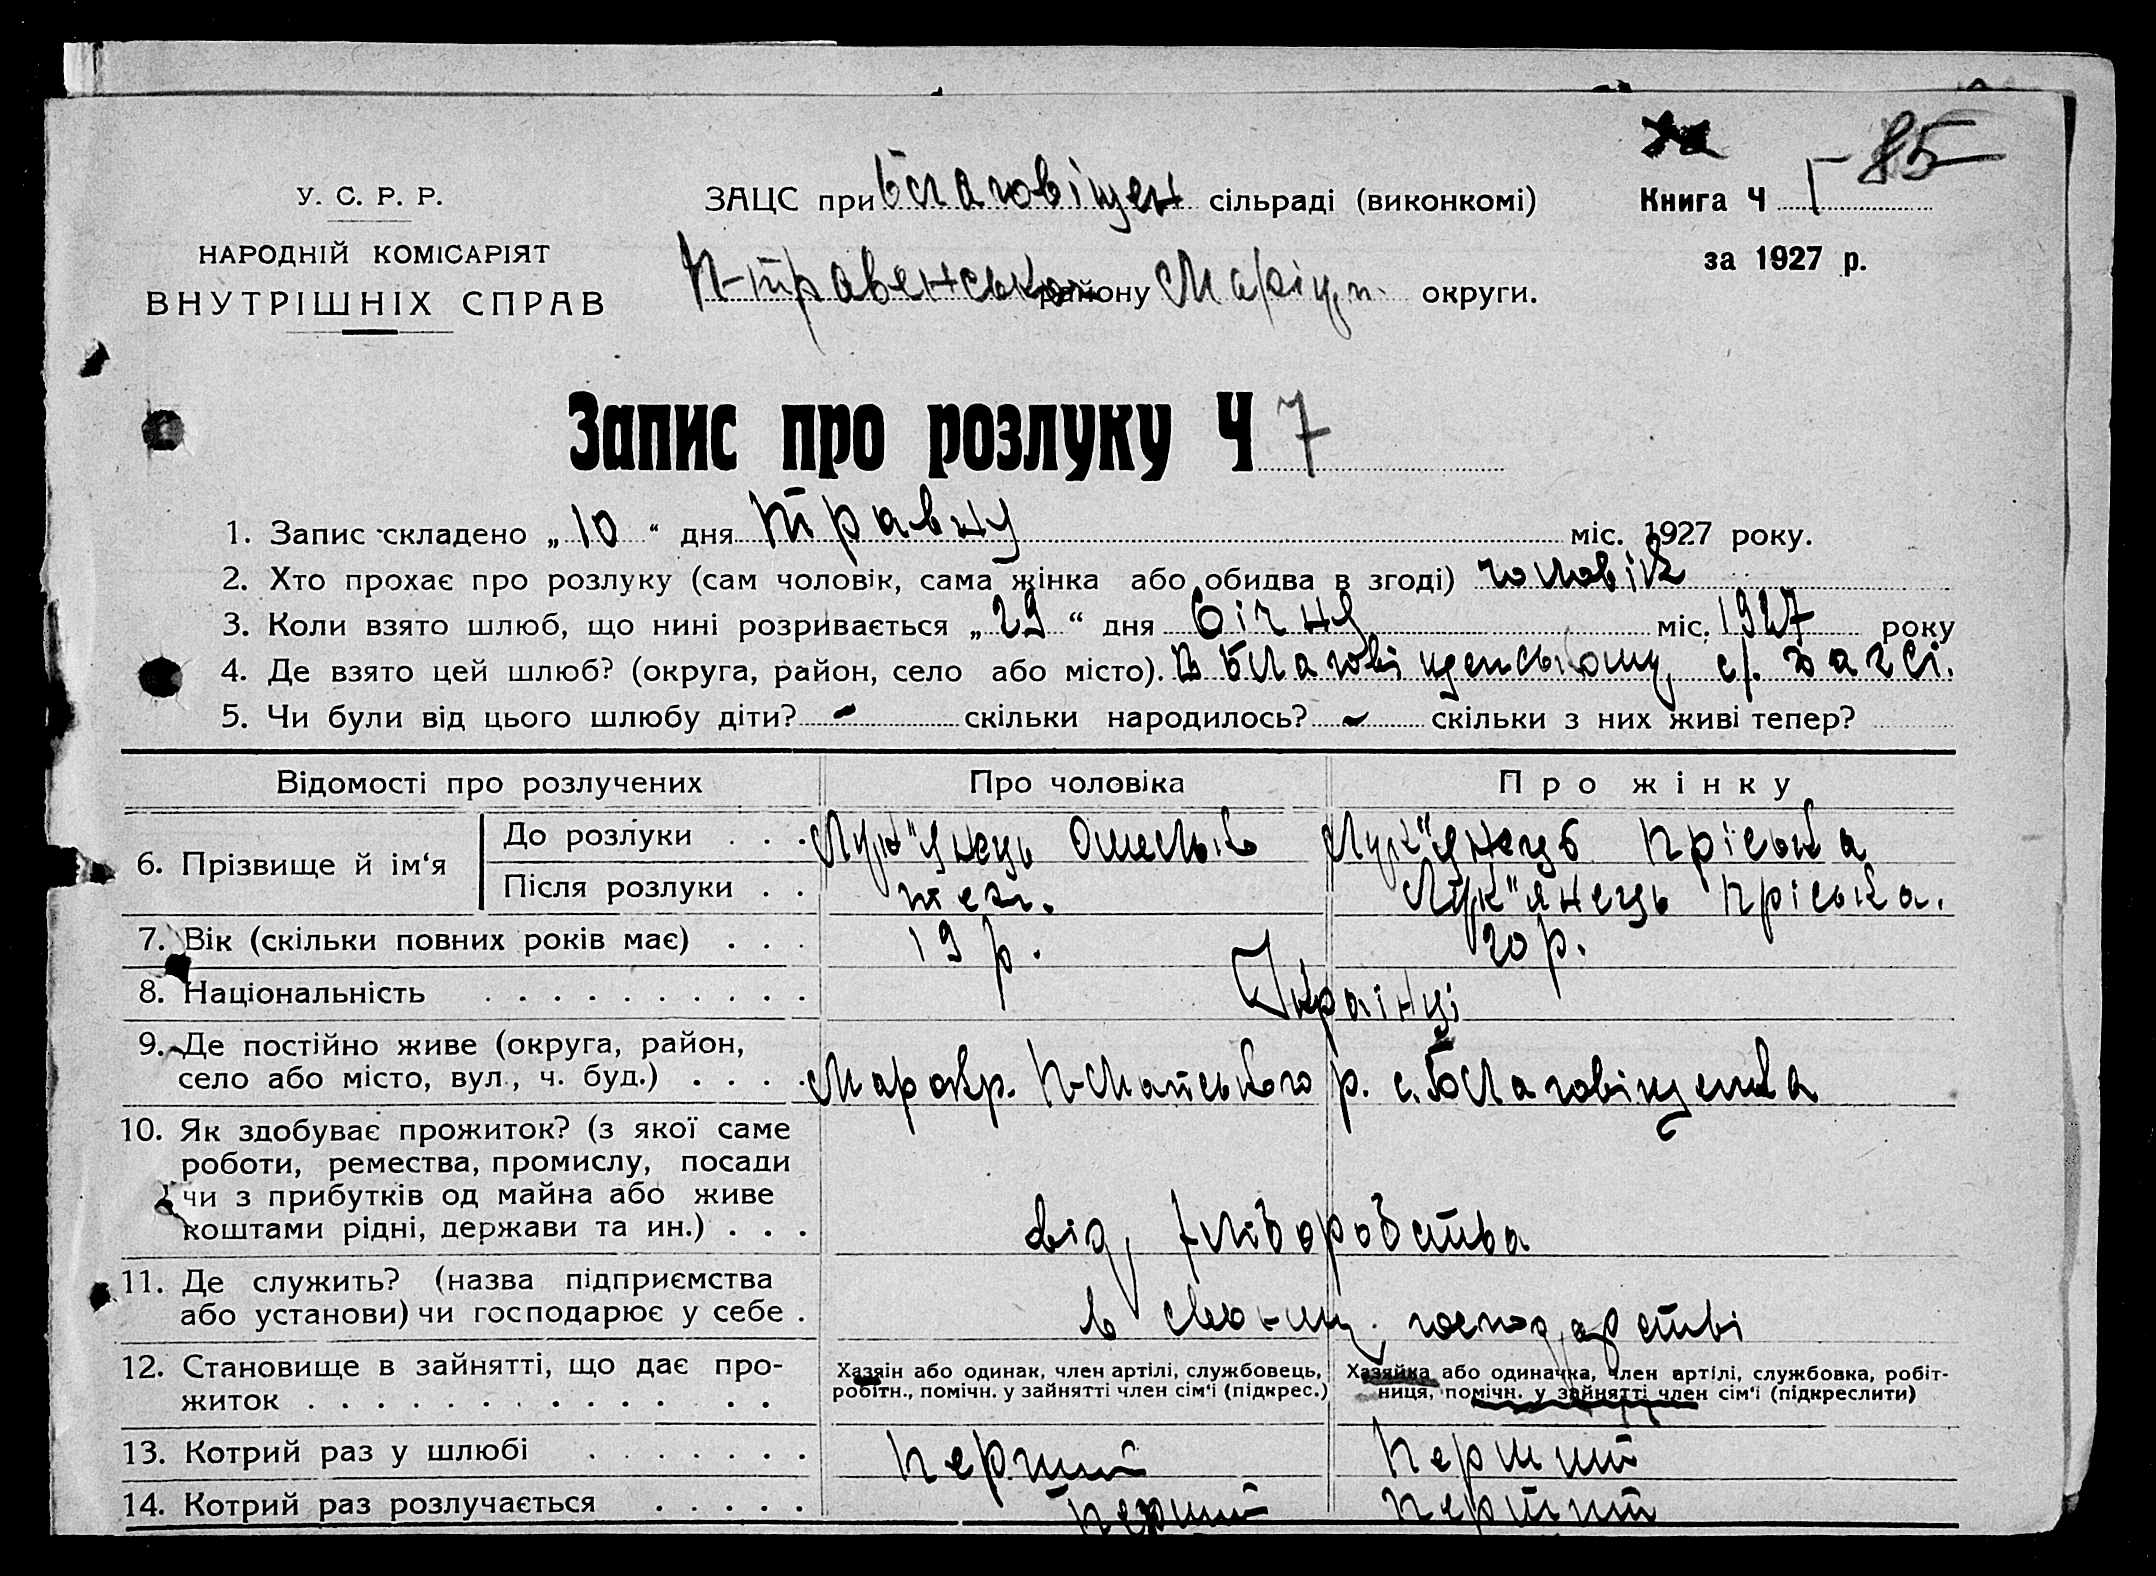 85
У. С. Р. Р.
НАРОДНІЙ КОМІСАРІЯТ
ВНУТРІШНІХ СПРАВ
ЗАЦС при Благовіщен сільраді (виконкомі)
району Маріуп. округи.
Книга Ч I
за 1927 р.
Запис про розлуку Ч 7
1. Запис складено „ 10 “ дня травня міс. 1927 року.
2. Хто прохає про розлуку (сам чоловік, сама жінка або обидва в згоді) чоловік
3. Коли взято шлюб, що нині розривається „ 29 “ дня січня міс. 1927 року
4. Де взято цей шлюб? (округа, район, село або місто). В Благовіщенському с/. загсі.
5. Чи були від цього шлюбу діти? - скільки народилось? - скільки з них живі тепер?
Відомості про розлучених Про чоловіка Про жінку
6. Прізвище й ім‘я
До розлуки . . . Лук"янець Омелько Лук"янець Пріська
Після розлуки . . теж. Лук"янець Пріська.
7. Вік (скільки повних років має) . . . 19 р. 20 р.
8. Національність . . . . . . . . . . Українці
9. Де постійно живе (округа, район,
село або місто, вул., ч. буд.) . . . . Мар окр. р. с. Благовіщенка
10. Як здобуває прожиток? (з якої саме
роботи, ремества, промислу, посади
чи з прибутків од майна або живе
коштами рідні, держави та ин.) . . . від хліборобства
11. Де служить? (назва підприємства
або установи) чи господарює у себе . в господарстві
12. Становище в зайнятті, що дає про-
житок . . . . . . . . . . . . .
Хазяін або одинак, член артілі, службовець,
робітн., помічн. у зайнятті член сім‘і (підкрес.)
Хазяйка або одиначка, член артілі, службовка, робіт-
ниця, помічн. у зайнятті член сім‘і (підкреслити)
13. Котрий раз у шлюбі . . . . . . . перший перший
14. Котрий раз розлучається . . . . . перший перший